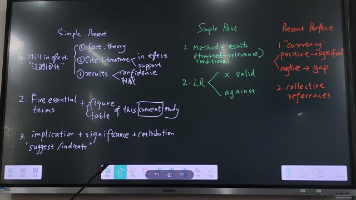 Simple Present
① fact. theory
② cite literature < in effect
support
③ results < confidence
1. still in effect
2. Five essential + figure
table of this current study
terms
3. implication + significance + contribution
"suggest / indicate"
Simple Past
1. Method + results
2. LR < x valid
against
Present Perfect
1. "currency
positive → significant
negative → gap
2. collective
references